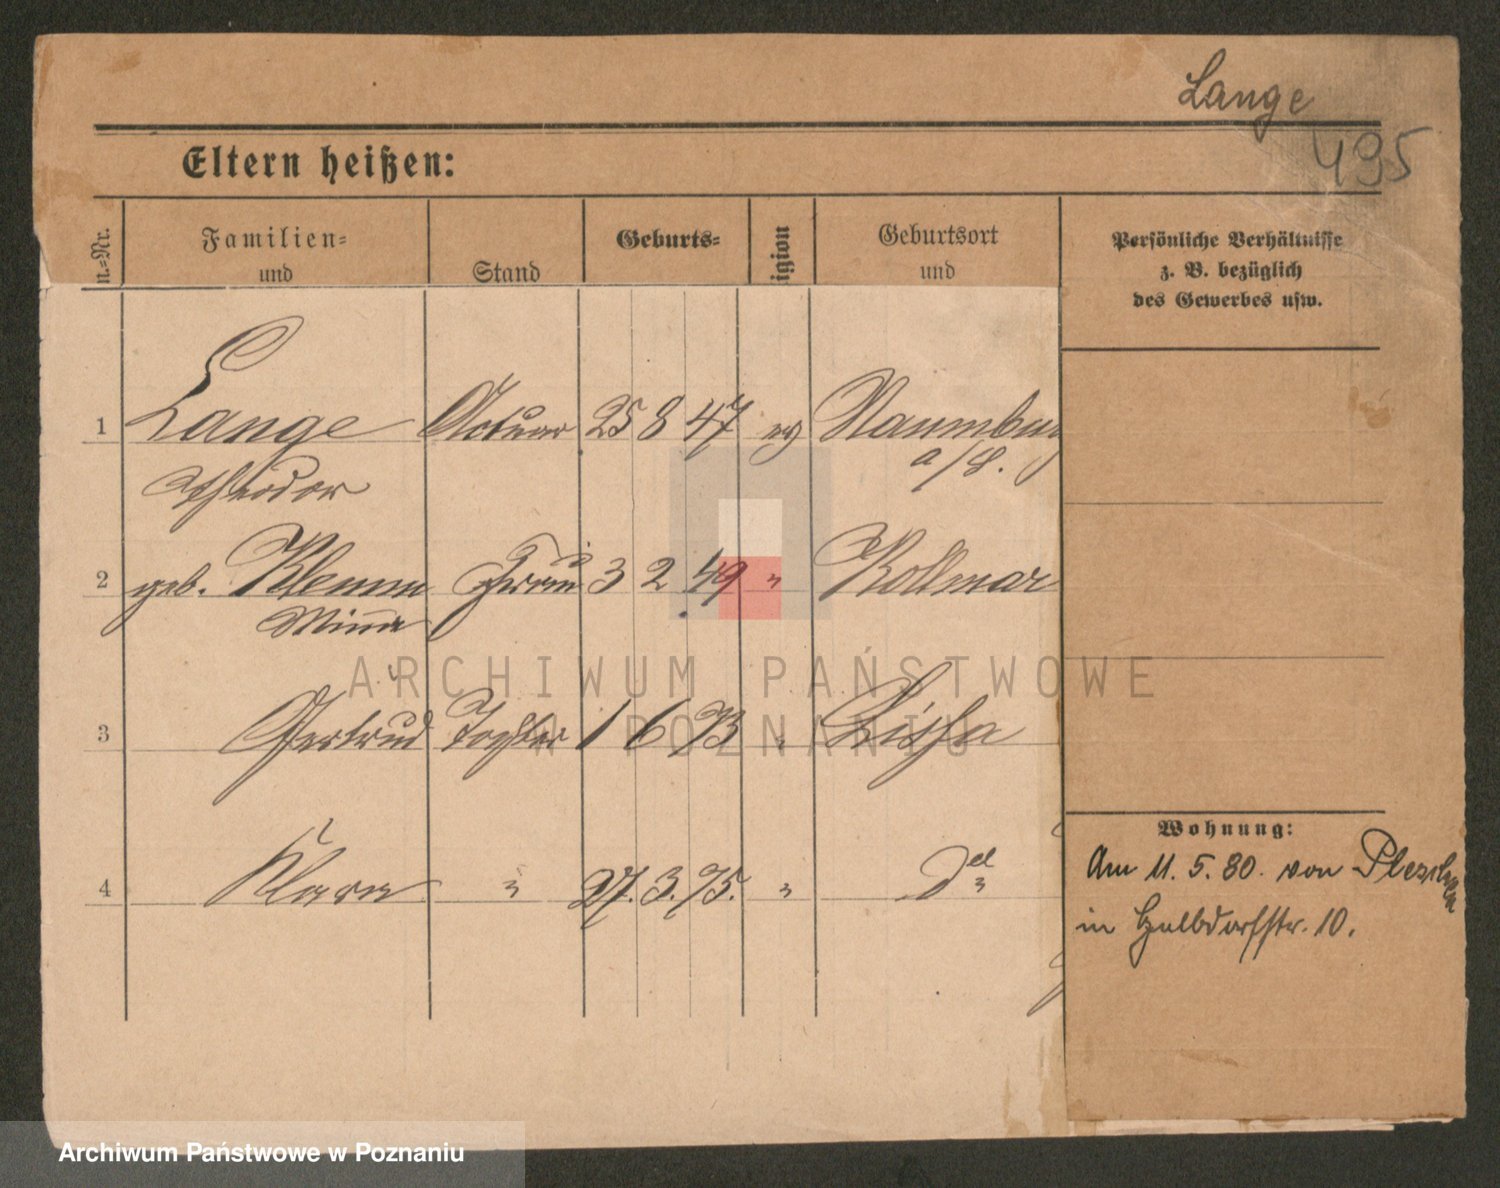 Lange
495
Eltern heißen:
n.=Nr.
Familien=
und
Stand
Geburts=
igion
Geburtsort
und
Persönliche Verhältnisse
z. B. bezüglich
des Gewerbes usw.
1 Lange Actuar 25 8 47 ev Naumburg
Theodor a/S.
2 geb. Klemm Frau 3 2 49 " Kollmar
Minna
3 Gertrud Tochter 1 6 73 " Lissa
4 Klara " 27. 3. 75. "
Wohnung:
Am 11. 5. 80. von Pleschen
in Halbdorfstr. 10.
ARCHIWUM PAŃSTWOWE
W POZNANIU
Archiwum Państwowe w Poznaniu